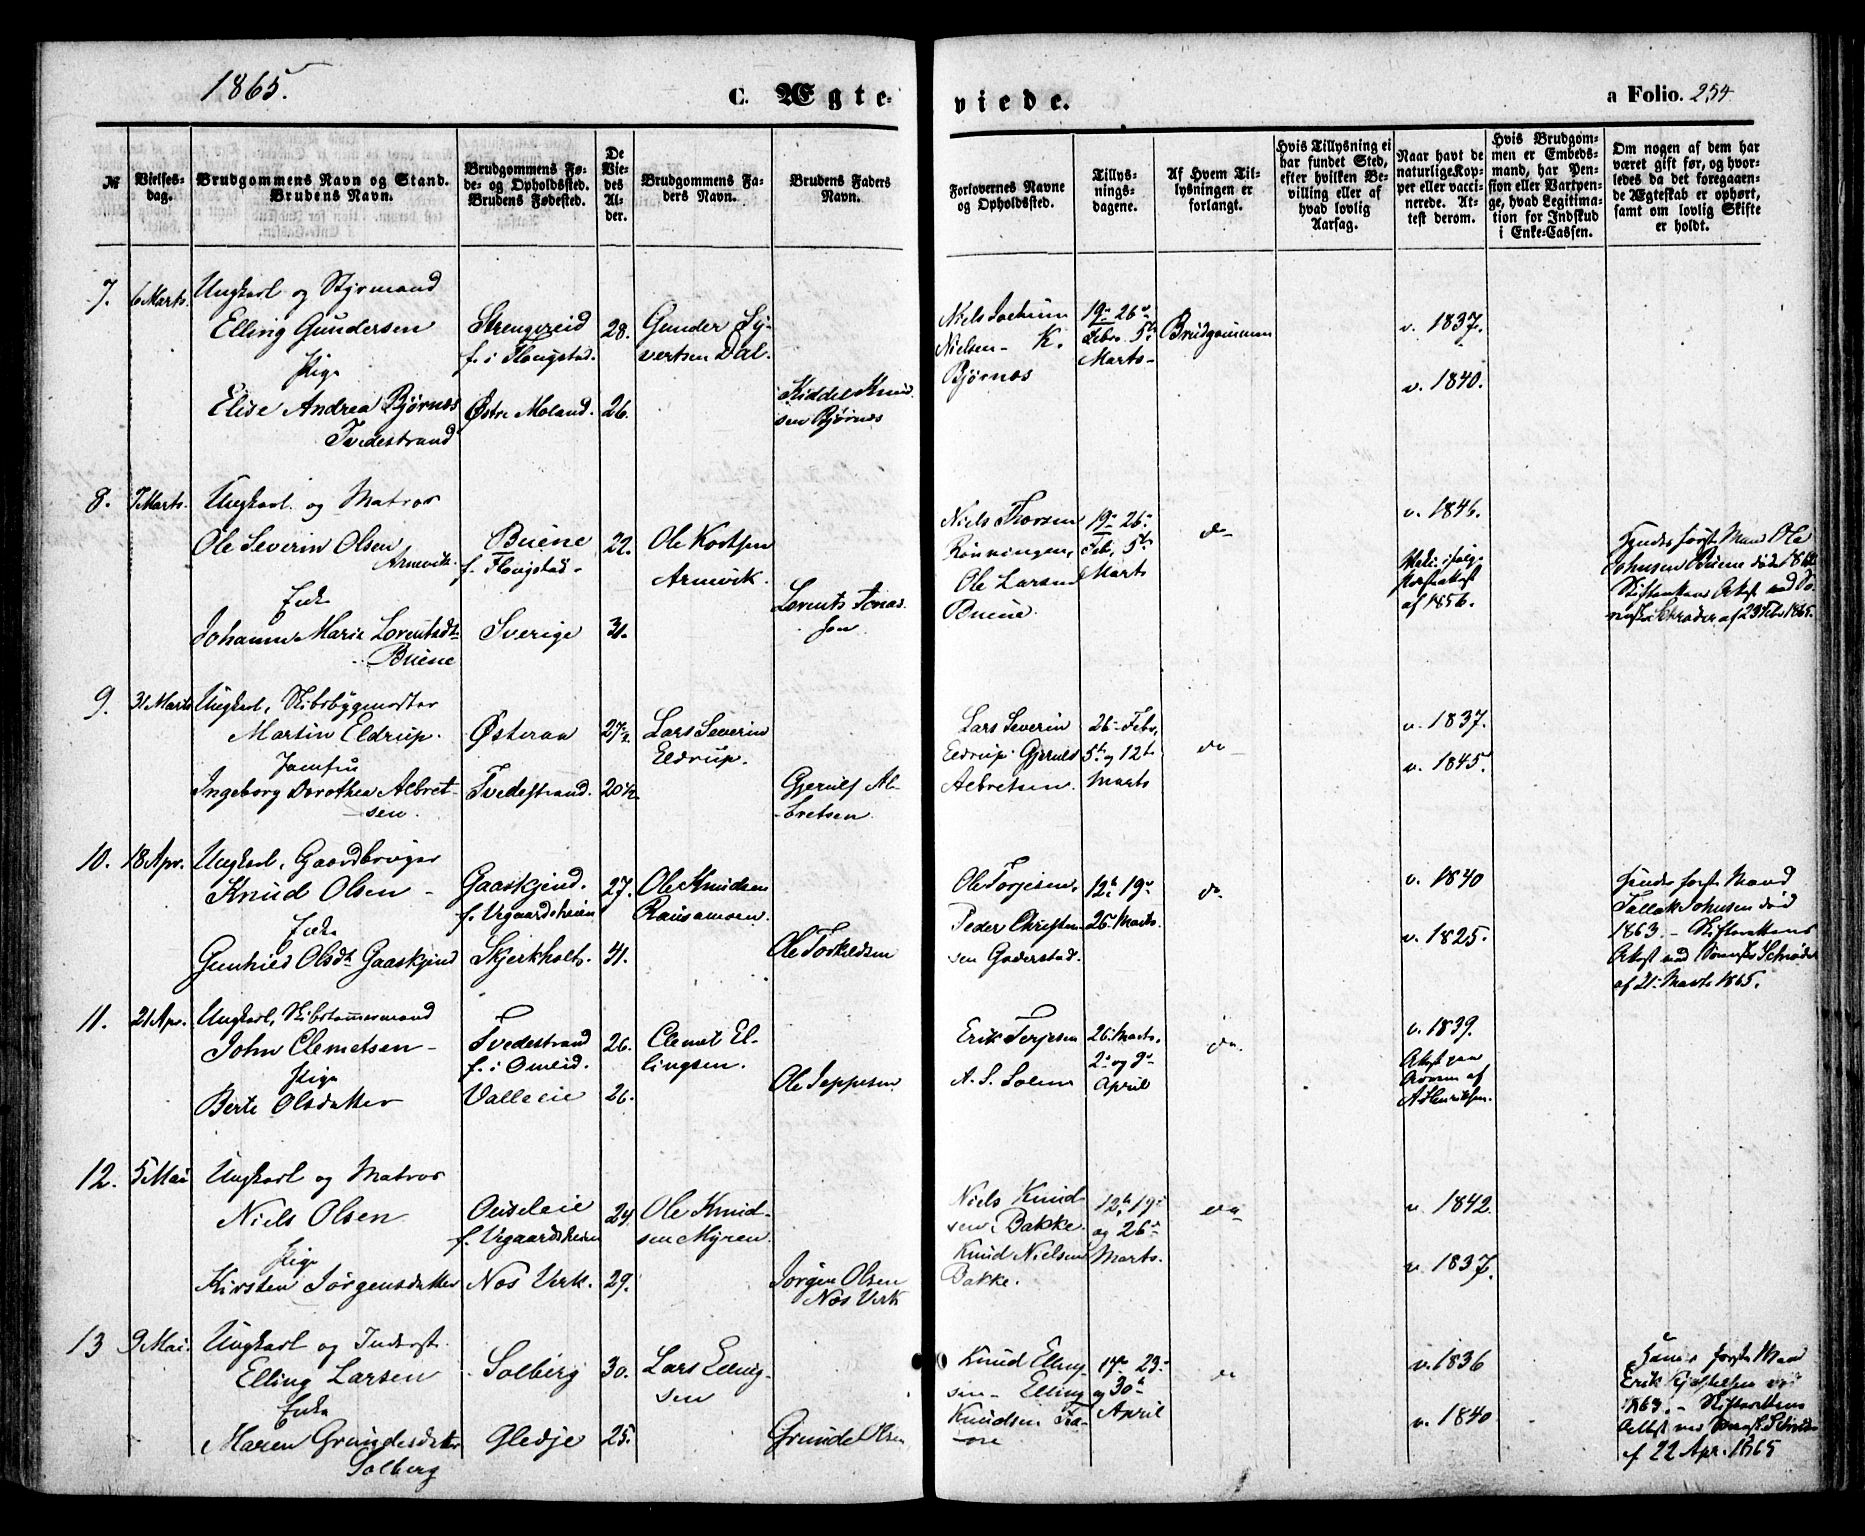 1865.
C. Ægte-
viede.
a Folio. 254
№
Vielses-
dag.
Brudgommens Navn og Stand.
Brudens Navn.
Brudgommens Fø-
de- og Opholdssted.
Brudens Fødested.
De
Vie-
des
Al-
der.
Brudgommens Fa-
ders Navn.
Brudens Faders
Navn.
Forlovernes Navne
og Opholdssted.
Tillys-
nings-
dagene.
Af Hvem Til-
lysningen er
forlangt.
Hvis Tillysning ei
har fundet Sted,
efter hvilken Be-
villing eller af
hvad lovlig
Aarsag.
Naar havt de
naturlige Kop-
per eller vacci-
nerede. At-
test derom.
Hvis Brudgom-
men er Embeds-
mand, har Pen-
sion eller Vartpen-
ge, hvad Legitima-
tion for Indskud
i Enke-Cassen.
Om nogen af dem har
været gift før, og hvor-
ledes da det foregaaen-
de Ægteskab er ophørt,
samt om lovlig Skifte
er holdt.
7. 6 Marts.
Ungkarl og Styrmand
Elling Gundersen
Pige
Elise Andrea Bjørnæs
Tvedestrand
Strengereid
f. i Flougstad.
Østre Moland.
28.
26.
Gunder Sy-
vertsen Dal.
Kiddel Knud
sen Bjørnæs
Niels Jochum
Nielsen - K.
Bjørnæs
19de 26de
Febr. 5te
Marts
Brudgommen
v. 1837.
v. 1840.
8. 7 Marts.
Ungkarl og Matros
Ole Severin Olsen
Arnevik.
Enke
Johanne Marie Lorentsdt
Buene
Buene
f. Flougstad.
Sverige
22.
31.
Ole Kortsen
Arnevik.
Lorents Jonas-
sen
Niels Thorsen
Rønningen,
Ole Larsen
Buene
19de 26de
Feb, 5te
Marts
do
v. 1846.
af 1856.
Hendes første Mand Ole
Johnsen Buene død
af 23 Febr 1865.
9. 31 Marts
Ungkarl, Skibsbygmester
Martin Eldrup.
Jomfru
Ingeborg Dorothea Albret-
sen.
Østeraa
Tvedestrand.
27½
20½
Lars Severin
Eldrup.
Gjerulf Al-
bretsen.
Lars Severin
Eldrup. Gjerulf
Albretsen.
26de Febr,
5te og 12te
Marts
do
v. 1837.
v. 1845.
10. 18 Apr.
Ungkarl, Gaardbruger
Knud Olsen
Enke
Gunhild Olsdt Gaaskjend
Gaaskjend.
f. Vegaardsheien
Skjerkholt.
27.
41.
Ole Knudsen
Rausamoen.
Ole Torkildsen
Ole Torjesen,
Peder Christen-
sen Goderstad.
12te 19de
26de Marts
do.
v. 1840
v. 1825.
Hendes første Mand
Tallak Johnsen død
1863. - Skifterettens
Attest ved Sorenskr. Schrøder
af 21 Marts 1865.
11. 21 Apr.
Ungkarl, Skibstømmermand
John Clemetsen
Pige
Berte Olsdatter
Tvedestrand
f. i Omlid.
Valleeie
26.
26.
Clemet El-
lingsen.
Ole Jeppesen
Erik Terjesen
A. S. Solem
26. Marts.
2de og 9de
April
do.
v. 1839.
Attest paa
af
A. Henriksen.
12. 5 Mai
Ungkarl og Matros
Niels Olsen
Pige
Kirsten Jørgensdatter
f. Vegaardsheien
Næs Verk.
24
29.
Ole Knud-
sen Myren.
Jørgen Olsen
Næs Verk
Niels Knud-
sen Bakke.
Knud Nielsen
Bakke.
12te, 19de
og 26de
Marts.
do
v. 1842.
v. 1837.
13 9 Mai.
Ungkarl og Inderst.
Elling Larsen
Enke
Maren Grundesdatter
Solberg
Solberg
Gledje
30.
25.
Lars Elling-
sen
Grunde Olsen
Knud Elling-
sen - Elling
Knudsen
17de 23de
og 30te
April
do
v. 1836
v. 1840
første Mand
Erik
1863. - Skifterettens
Attest ved Sorenskr. Schrøder
af 22 Apr. 1865